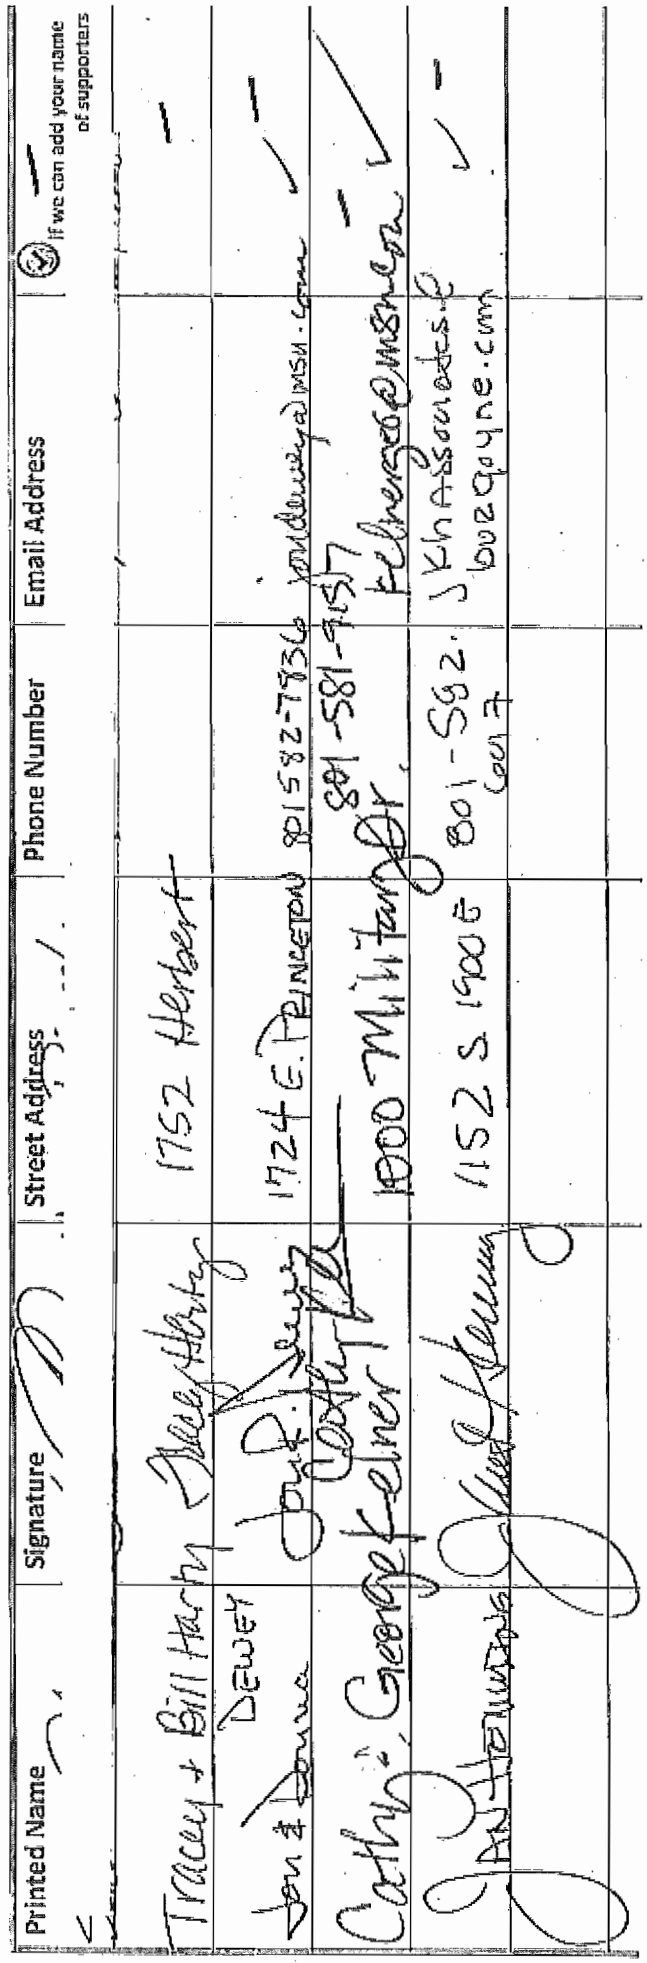 Printed Name Signature Street Address Phone Number Email Address if we can add your name
of supporters
Tracey + Bill Harty Tracey Harty 1752 Herbert
DEWEY
Jon & Donna Jon R. Dewey 1724 E. PRINCETON 801 582-7836 jondewey@msn.com
Cathy George Kelner 1000 Military Dr. 801-581-9157 kelnergeo@msn.com
JAN 1152 S 1900 E 801-582. JKhAssociates@
6017 burgoyne.com